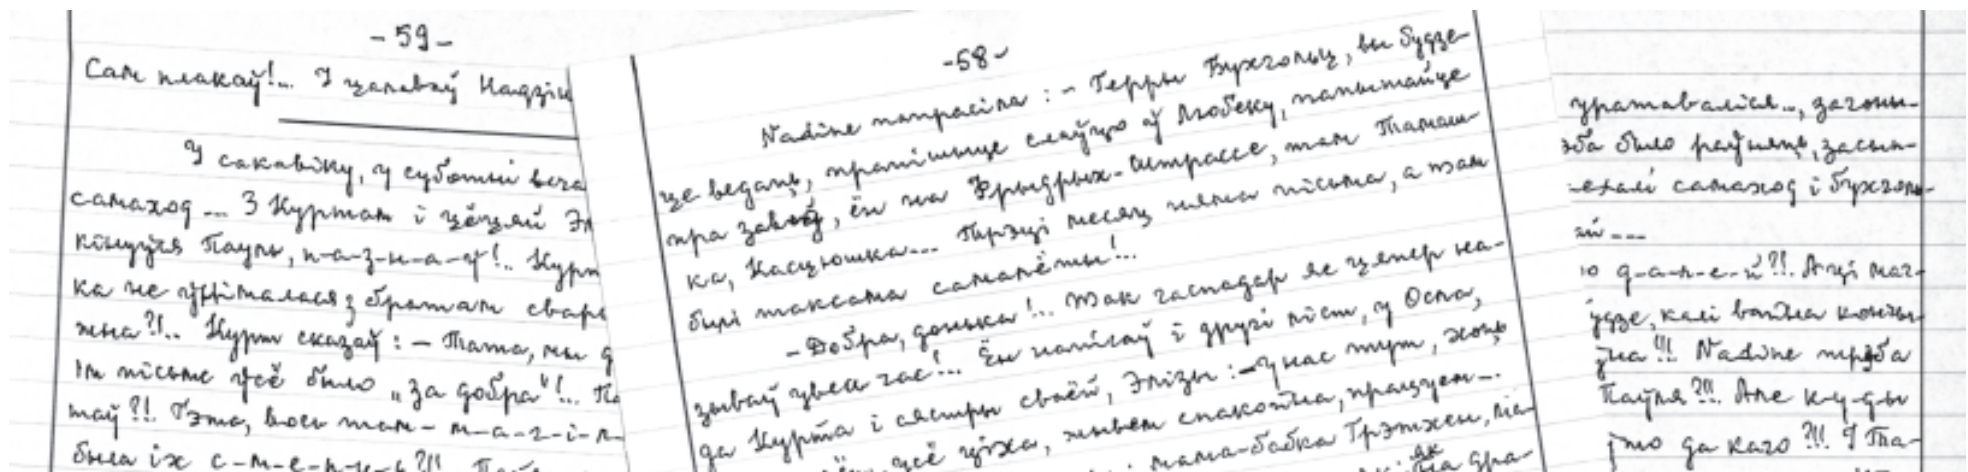 - 59 -
Сам плакаў!... І цалаваў Надзін
У сакавіку, у суботні веча
самаход... З Куртам і цёцяй Эл
кінуўся Пауль, п-а-з-н-а-ў!.. Курт
ка не ўнімалася з братам свары
жна?!.. Курт сказаў: - Тата, мы д
Ім пісьме ўсё было „за добра"!.. Па
таў?!. Гэта, вось там - м-а-г-і-л-
была іх
- 58 -
Nadine папрасіла: - Герры Бухгольц, вы будзе-
це ведаць, прапішыце слаўцо аў Любеку, папытайце
пра завод, ён на Фрыдрых-Штрассе, там Тамаш-
ка, Касцюшка... Трэці месяц няма пісьма, а там
былі таксама самалёты!..
- Добра, донька!.. Так гаспадар яе цяпер на-
зываў увесь час!... Ён напісаў і другі ліст, у Осла,
да Курта і сястры сваёй, Элізы: - У нас тут, хоць
усё ціха, жывём спакойна, працуем...
мама-бабка Грэтхен,
уратаваліся..., загоны-
эба было раўняць, засып-
ехалі самаход і Бухголь-
ай...
ю д-а-л-е-й?!!. Аці маг-
ўдзе, калі вайна конны-
ўна!!! Nadine трэба
Паўля?!!. Але к-у-д-ы
што да каго?!!. У Та-